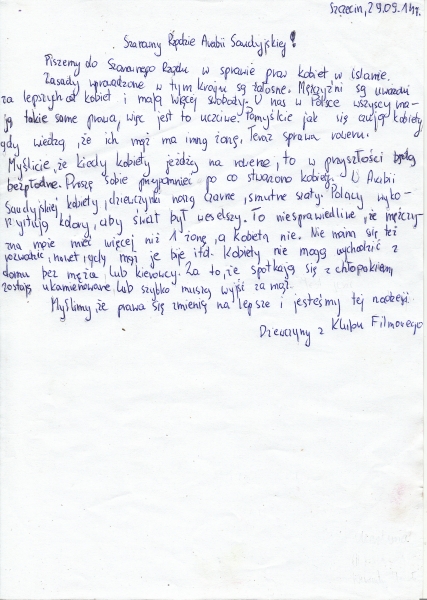 Szczecin, 29.09.14r.
Szanowny Rządzie Arabii Saudyjskiej!
Piszemy do Szanownego Rządu w sprawie praw kobiet w islamie.
Zasady wprowadzone w tym kraju są żałosne. Mężczyźni są uważani
za lepszych od kobiet i mają więcej swobody. U nas w Polsce wszyscy ma-
ją takie same prawa, więc jest to uczciwe. Pomyślcie jak się czują kobiety
gdy wiedzą, że ich mąż ma inną żonę. Teraz sprawa roweru.
Myślicie, że kiedy kobiety jeżdżą na rowerze, to w przyszłości będą
bezpłodne. Proszę sobie przypomnieć po co stworzono kobietę. U Arabii
Saudyjskiej kobiety, dziewczynki noszą czarne, smutne szaty. Polacy wyko-
rzystują kolory, aby świat był weselszy. To niesprawiedliwe, że mężczy-
zna może mieć więcej niż 1 żonę, a kobieta nie. Nie można się też
rozwodzić, nawet gdy mąż je bije itd. Kobiety nie mogą wychodzić z
domu bez męża, lub kierowcy. Za to, że spotkają się z chłopakiem,
zostają ukamienowane, lub szybko muszą wyjść za mąż.
Myślimy, że prawa się zmienią na lepsze i jesteśmy tej nadzieji.
Dziewczyny z Klubu Filmowego